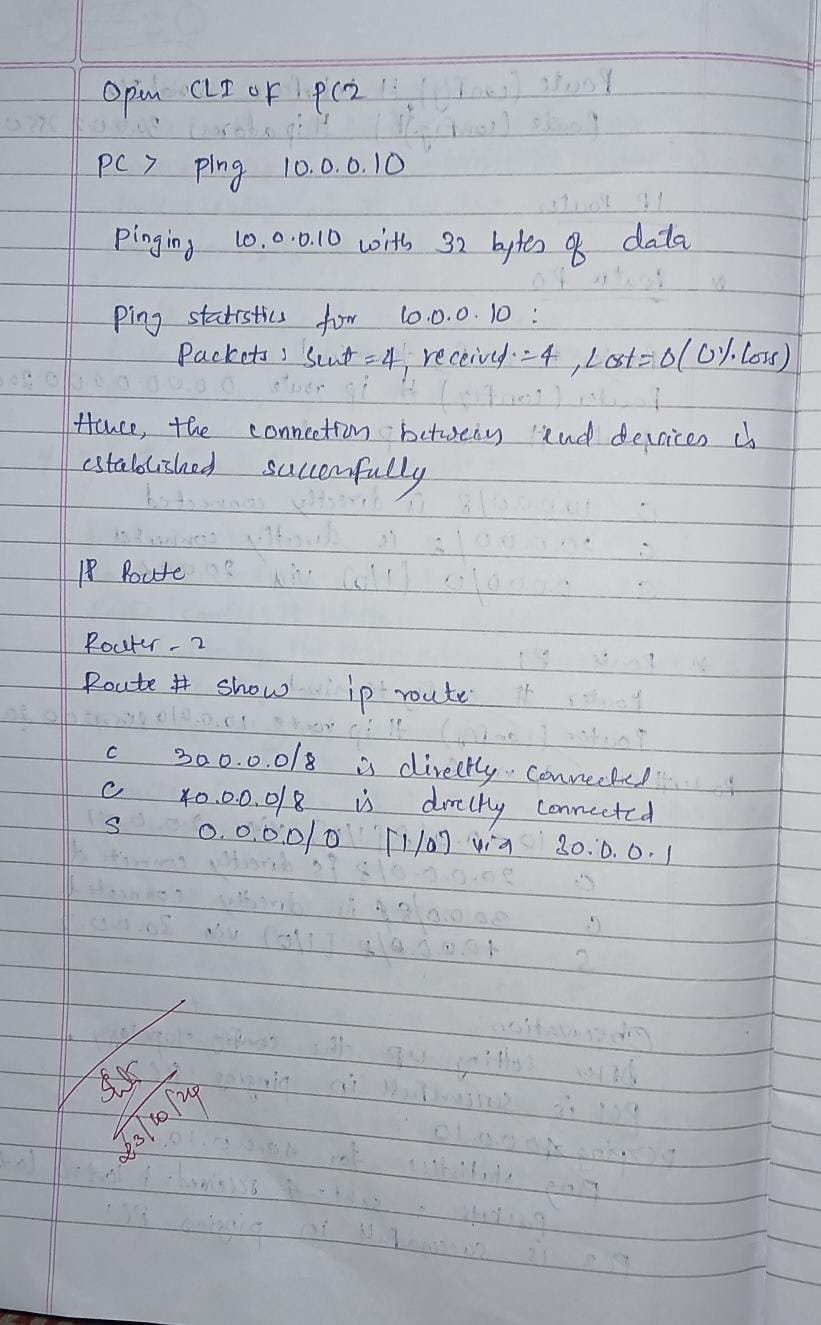 Open CLI of PC2
PC > ping 10.0.0.10
Pinging 10.0.0.10 with 32 bytes of data
Ping statistics for 10.0.0.10 :
Packets: Sent = 4, received = 4, Lost = 0 (0% loss)
Hence, the connection between end devices is
established successfully
IP Route
Router - 2
Route # show ip route
C 30.0.0.0/8 is directly connected
C 40.0.0.0/8 is directly connected
S 0.0.0.0/0 [1/0] via 30.0.0.1
23/10/24